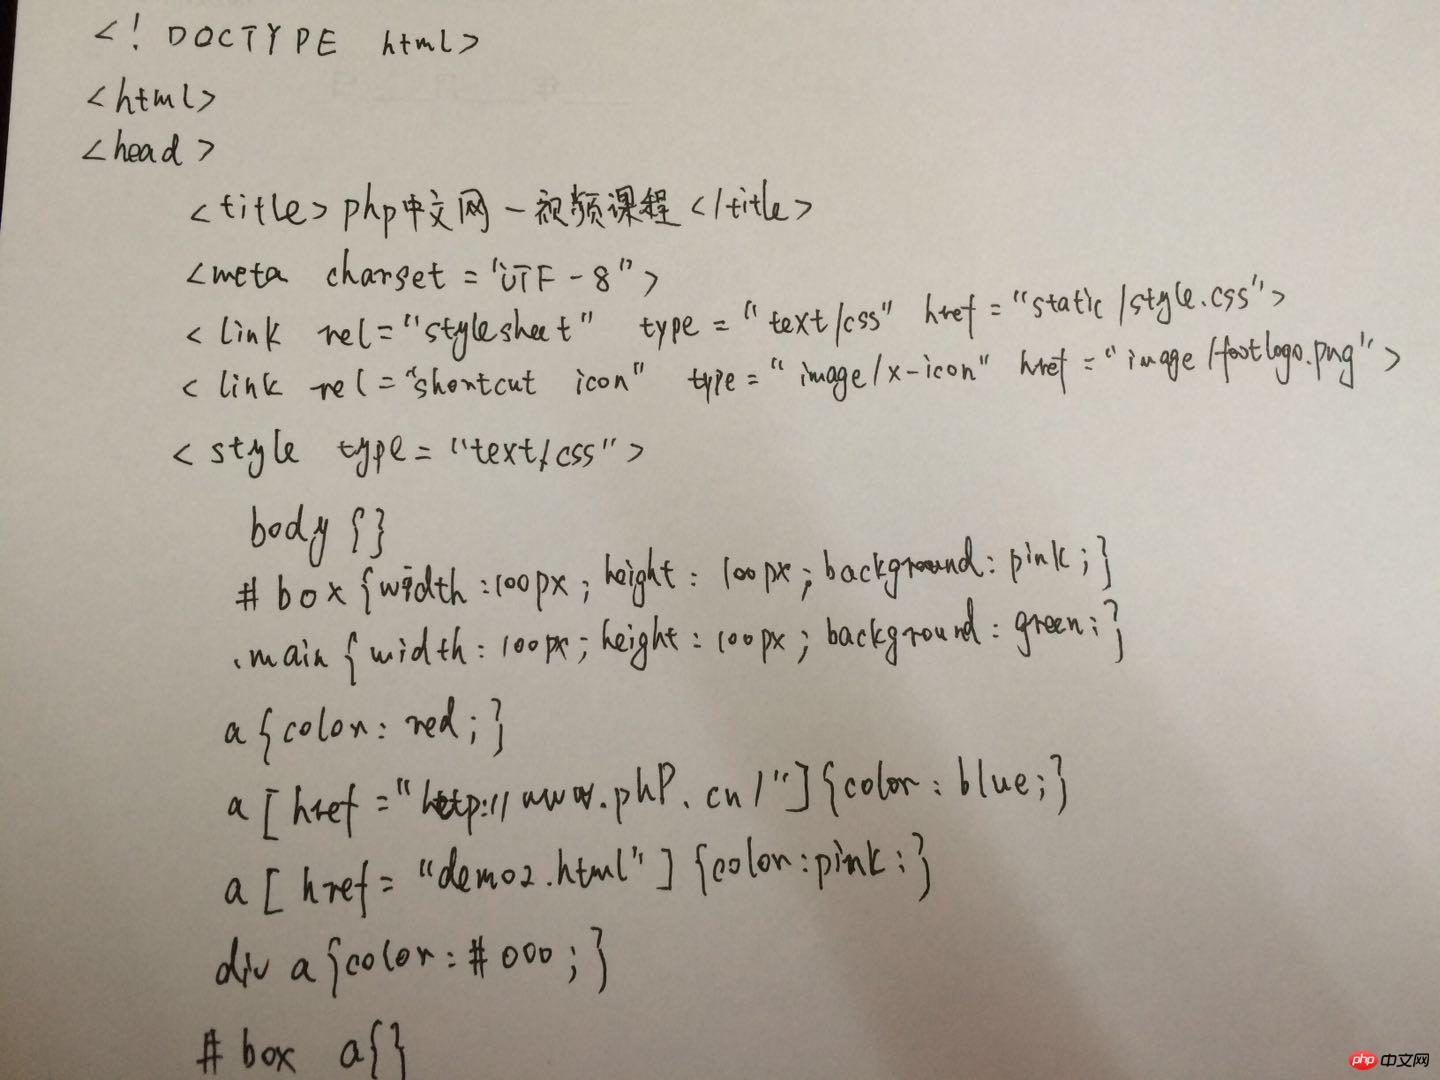 <! DOCTYPE html>
<html>
<head>
<title>php中文网-视频课程</title>
<meta charset="UTF-8">
<link rel="stylesheet" type="text/css" href="static/style.css">
<link rel="shortcut icon" type="image/x-icon" href="image/footlogo.png">
<style type="text/css">
body {}
#box{width:100px; height: 100px; background: pink;}
.main{width: 100px; height: 100px; background: green;}
a{color: red;}
a[href="http://www.php.cn/"]{color: blue;}
a[href="demo2.html"]{color:pink;}
div a{color:#000;}
#box a{}
php 中文网